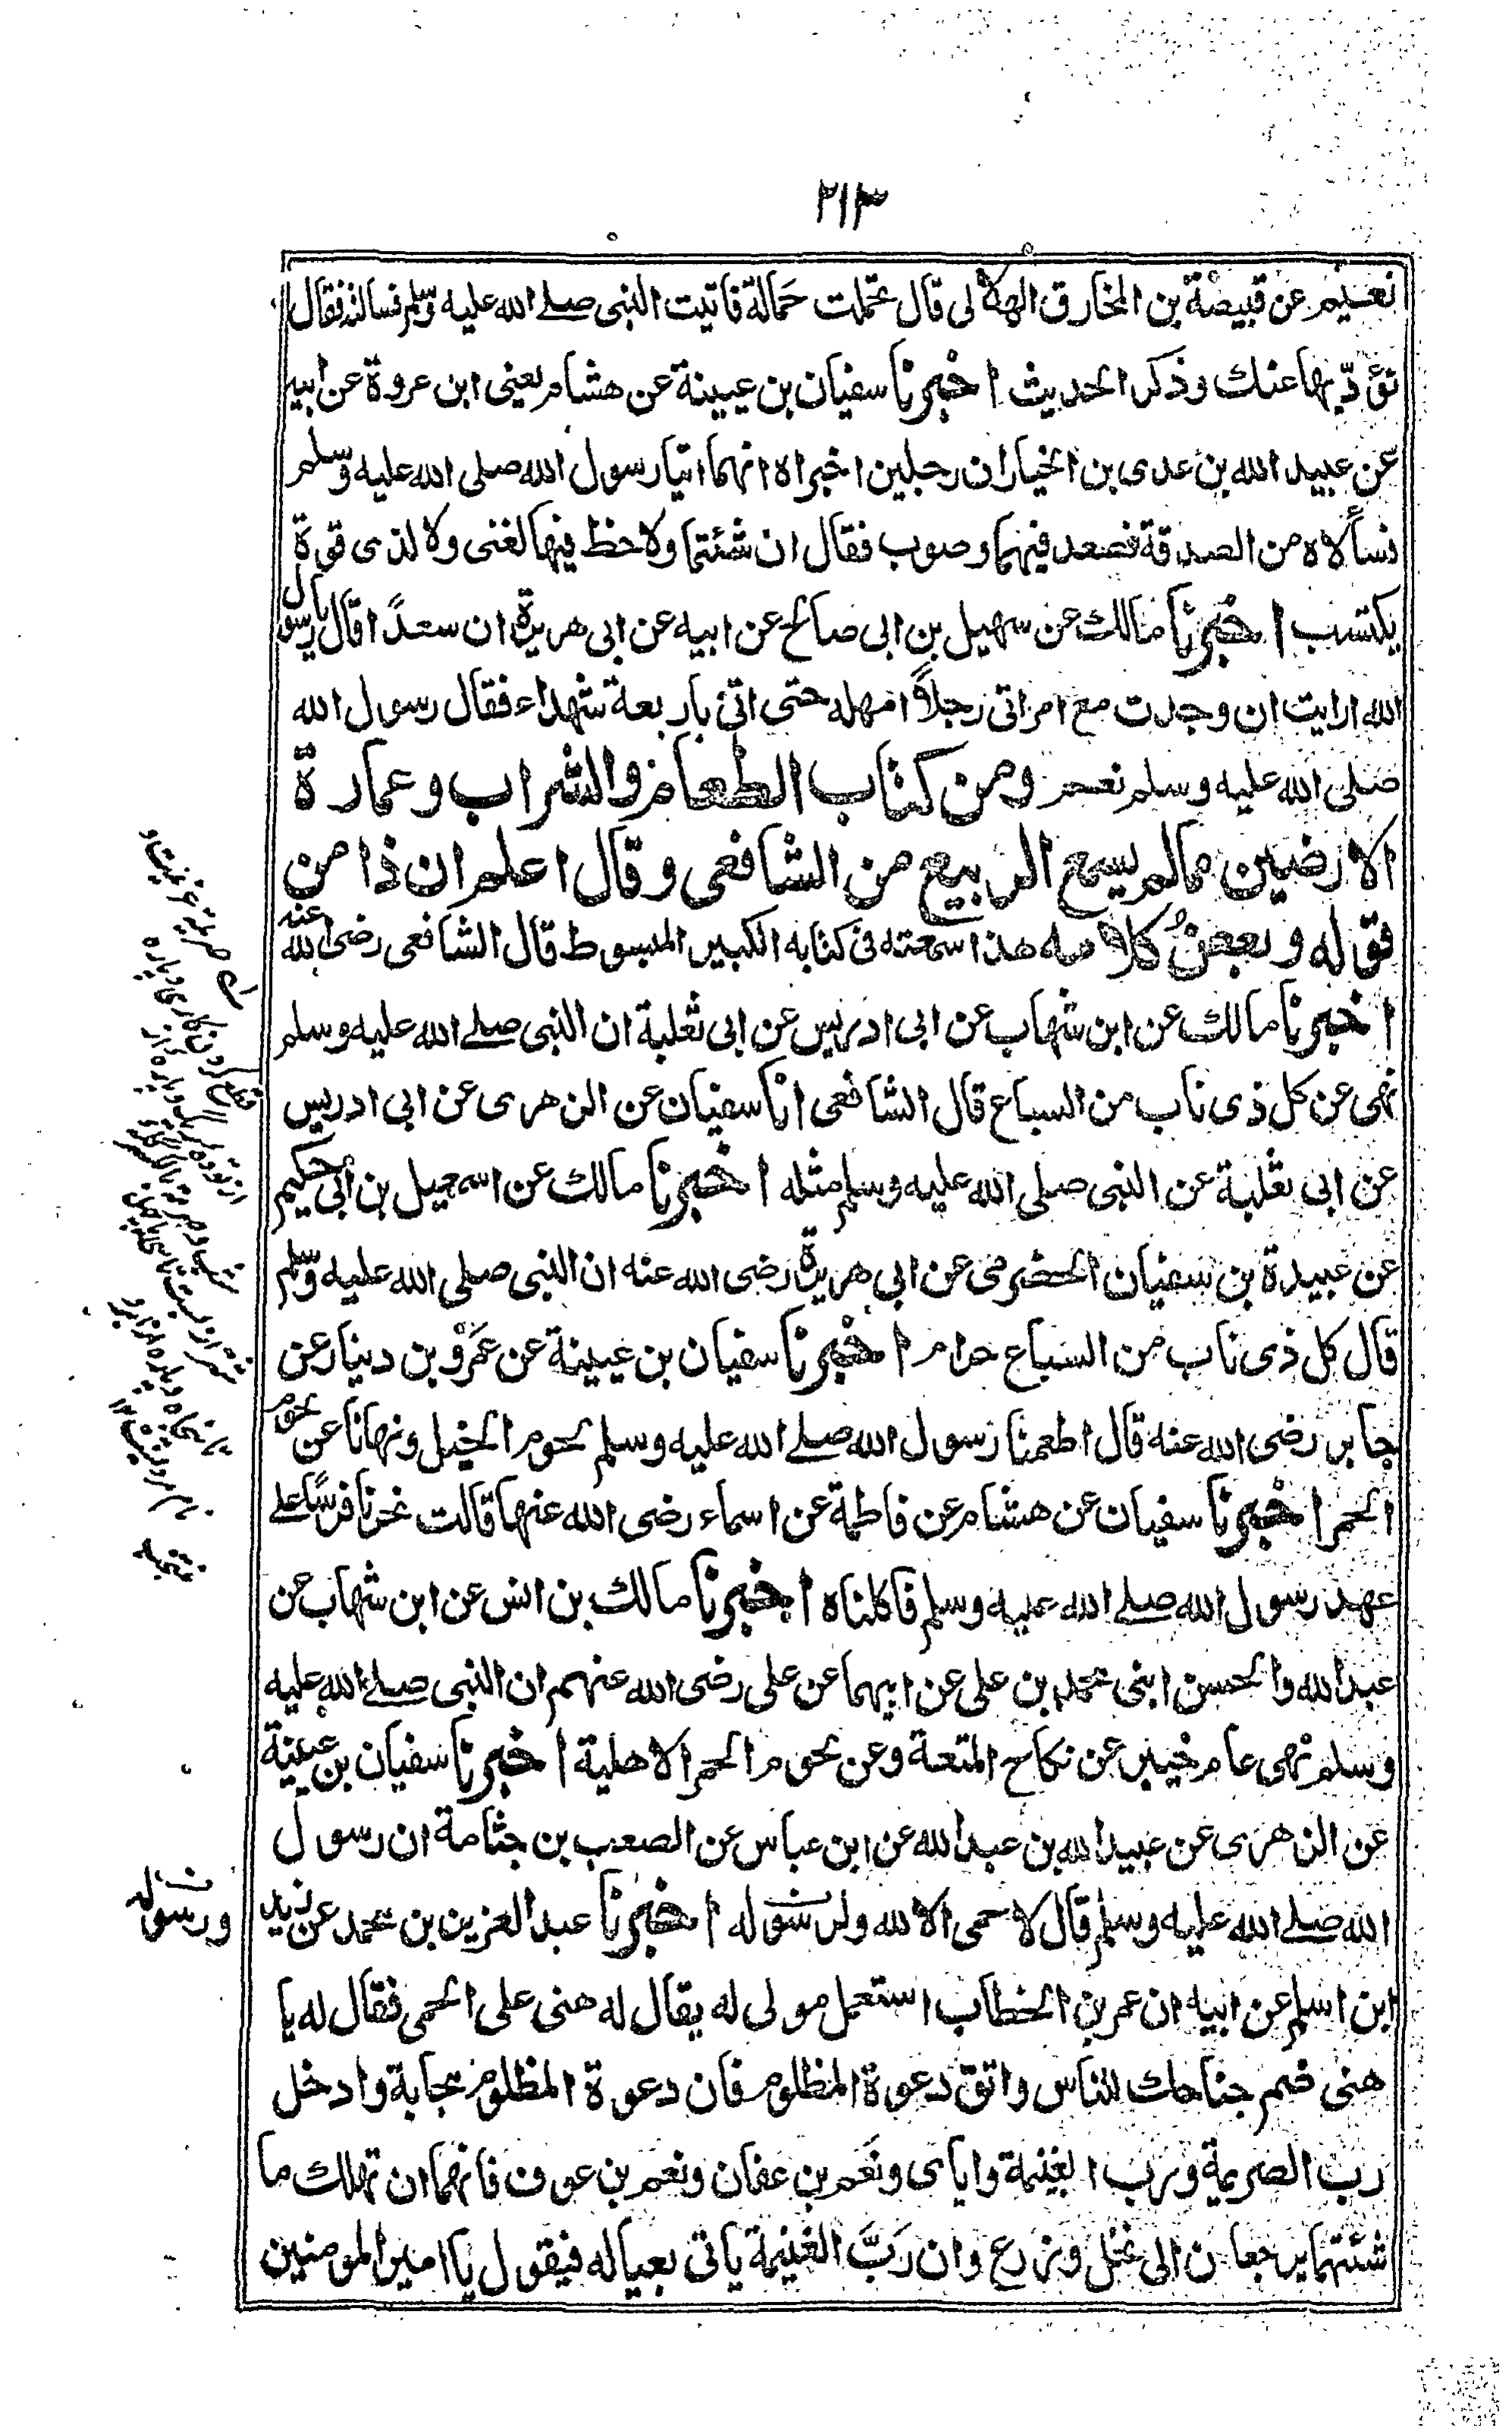 ٢١٣
نعيم عن قبيصة بن المخارق الهلالى قال تحملت حمالة فاتيت النبى صلے الله عليه وسلم فسالته فقال
نؤديها عنك وذكر الحديث اخبرنا سفيان بن عيينة عن هشام يعنى ابن عروة عن ابيه
عن عبيد الله بن عدى بن الخيار ان رجلين اخبراه انهما اتيا رسول الله صلى الله عليه وسلم
فسألاه من الصدقة فصعد فيهما وصوب فقال ان شئتما ولا حظ فيها لغنى ولا لذى قوة
يكتسب اخبرنا مالك عن سهيل بن ابى صالح عن ابيه عن ابى هريرة ان سعدًا قال يا رسول
الله ارايت ان وجدت مع امراتى رجلاً امهله حتى اتى باربعة شهداء فقال رسول الله
صلى الله عليه وسلم نعم ومن كتاب الطعام والشراب وعمارة
الارضين مما لم يسمع الربيع من الشافعى وقال اعلم ان ذا من
قوله وبعضُ كلامه هذا سمعته فى كتابه الكبير المبسوط قال الشافعى رضى الله عنه
اخبرنا مالك عن ابن شهاب عن ابى ادريس عن ابى ثعلبة ان النبى صلے الله عليه وسلم
نهى عن كل ذى ناب من السباع قال الشافعى انا سفيان عن الزهرى عن ابى ادريس
عن ابى ثعلبة عن النبى صلى الله عليه وسلم مثله اخبرنا مالك عن اسمعيل بن ابى حكيم
عن عبيدة بن سفيان الحضرمى عن ابى هريرة رضى الله عنه ان النبى صلى الله عليه وسلم
قال كل ذى ناب من السباع حرام اخبرنا سفيان بن عيينة عن عَمْرو بن دينار عن
جابر رضى الله عنه قال اطعمنا رسول الله صلے الله عليه وسلم لحوم الخيل ونهانا عن لحوم
الحمر اخبرنا سفيان عن هشام عن فاطمة عن اسماء رضى الله عنها قالت نحرنا فرسًا على
عهد رسول الله صلے الله عليه وسلم فاكلناه اخبرنا مالك بن انس عن ابن شهاب عن
عبدالله والحسن ابنى محمد بن على عن ابيهما عن على رضى الله عنهم ان النبى صلے الله عليه
وسلم نهى عام خيبر عن نكاح المتعة وعن لحوم الحمر الاهلية اخبرنا سفيان بن عيينة
عن الزهرى عن عبيدالله بن عبدالله عن ابن عباس عن الصعب بن جثامة ان رسول
الله صلے الله عليه وسلم قال لا حمى الا لله ولرسوله اخبرنا عبدالعزيز بن محمد عن زيد
ورسوله
ابن اسلم عن ابيه ان عمر بن الخطاب استعمل مولى له يقال له هنى على الحمى فقال له يا
هنى ضم جناحك للناس واتق دعوة المظلوم فان دعوة المظلوم مجابة وادخل
رب الصريمة ورب الغنيمة واياى ونَعم بن عفان ونعم بن عوف فانهما ان تهلك ما
شئتهما يرجعان الى نخل وزرع وان رَبَّ الغنيمة ياتى بعياله فيقول يا امير المومنين